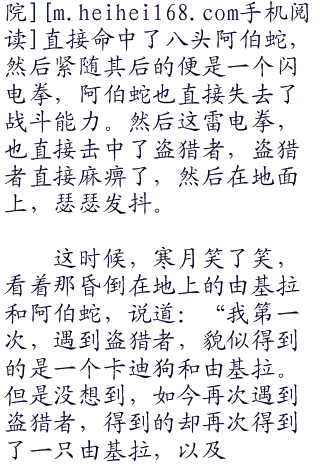 院][m.heihei168.com手机阅
读]直接命中了八头阿伯蛇，
然后紧随其后的便是一个闪
电拳，阿伯蛇也直接失去了
战斗能力。然后这雷电拳，
也直接击中了盗猎者，盗猎
者直接麻痹了，然后在地面
上，瑟瑟发抖。
这时候，寒月笑了笑，
看着那昏倒在地上的由基拉
和阿伯蛇，说道：“我第一
次，遇到盗猎者，貌似得到
的是一个卡迪狗和由基拉。
但是没想到，如今再次遇到
盗猎者，得到的却再次得到
了一只由基拉，以及